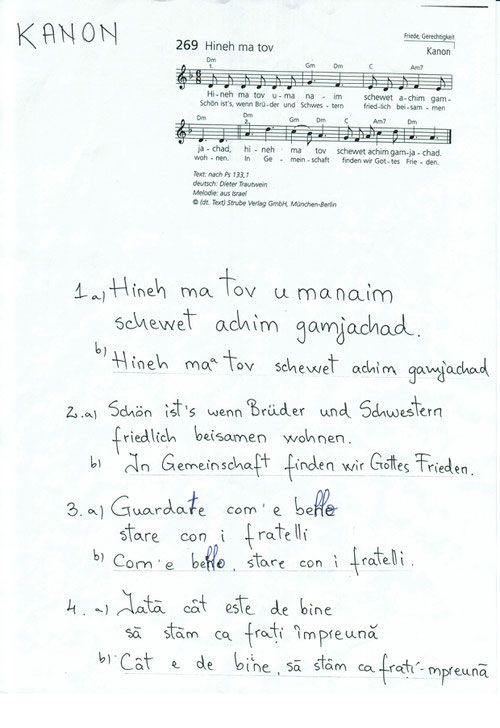 KANON
Friede, Gerechtigkeit
269 Hineh ma tov
Kanon
Dm Gm Dm C Am7
1.
Hi-neh ma tov u-ma na-im schewet a-chim gam-
Schön ist's, wenn Brü-der und Schwes-tern fried-lich bei-sam-men
Dm Dm Gm Dm C Am7 Dm
2.
ja-chad, hi-neh ma tov schewet achim gam-ja-chad.
woh-nen. In Ge-mein-schaft finden wir Got-tes Frie-den.
Text: nach Ps 133,1
deutsch: Dieter Trautwein
Melodie: aus Israel
© (dt. Text) Strube Verlag GmbH, München-Berlin
1 a) Hineh ma tov u manaim
schewet achim gamjachad.
b) Hineh maa tov schewet achim gamjachad
2. a) Schön ist's wenn Brüder und Schwestern
friedlich beisamen wohnen.
b) In Gemeinschaft finden wir Gottes Frieden.
3. a) Guardate com'e bello
stare con i fratelli
b) Com'e bello, stare con i fratelli.
4. a) Iată cât este de bine
să stăm ca frați împreună
b) Cât e de bine, să stăm ca frați-mpreună